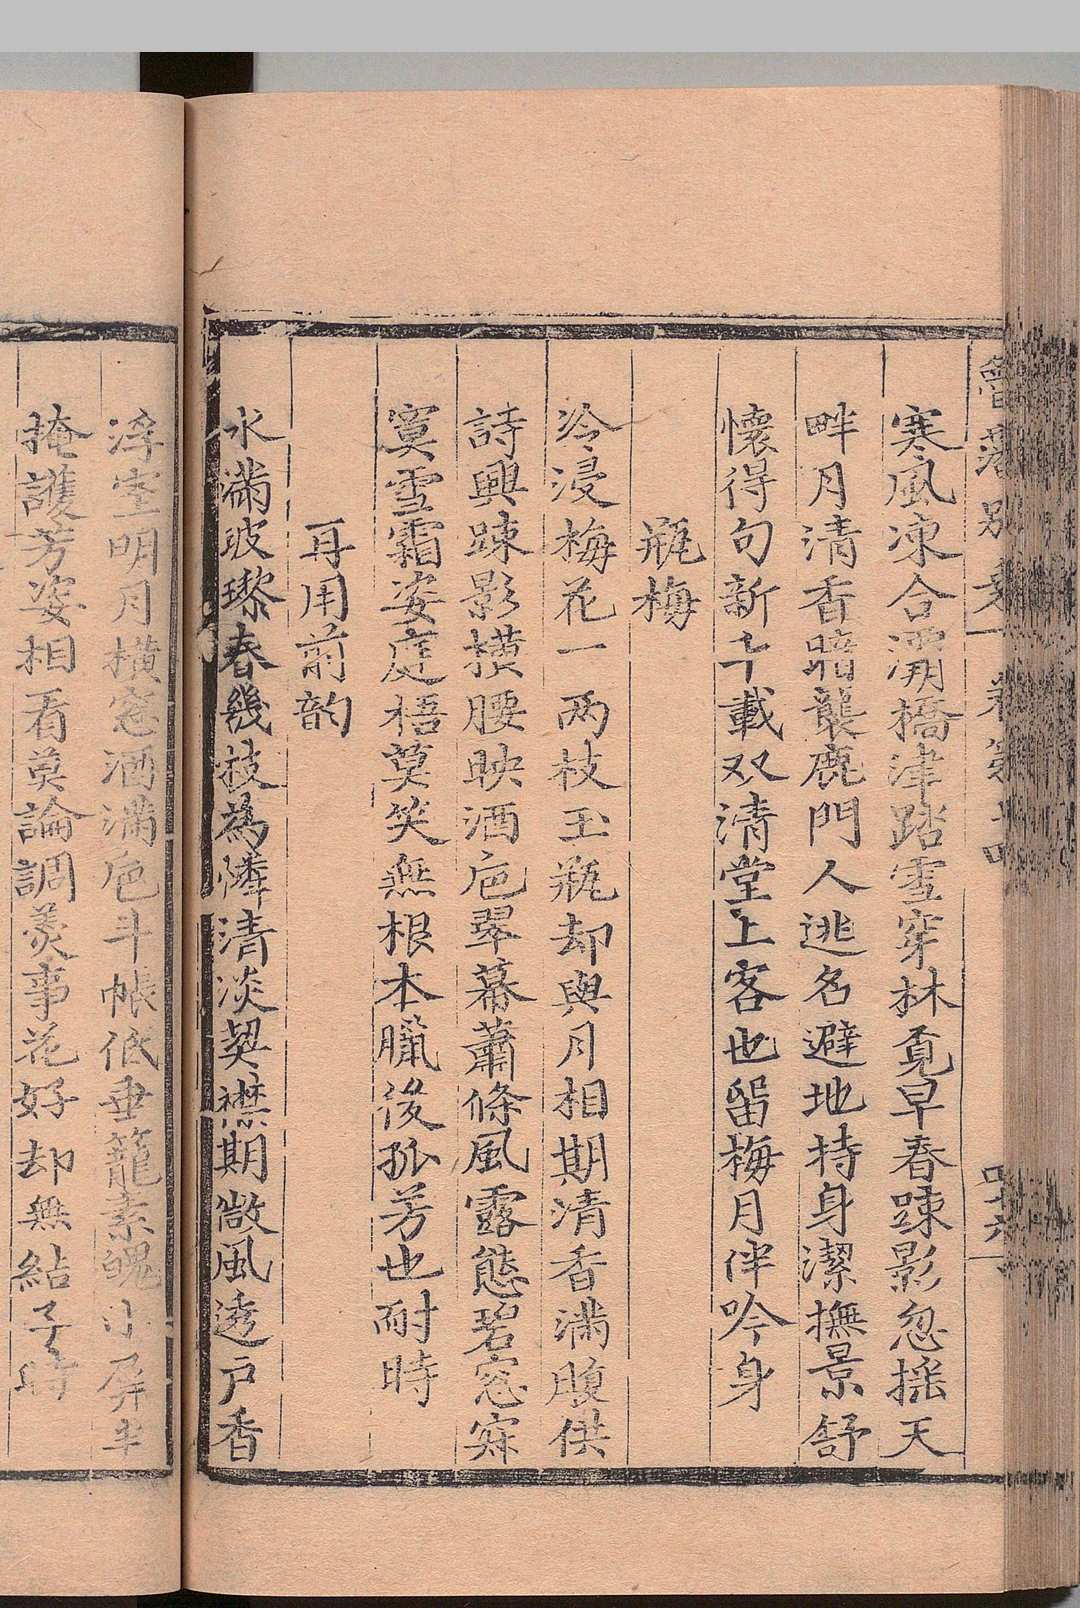 寒風凍合灞橋津踏雪穿林覔早春踈影忽搖天
畔月清香暗襲鹿門人逃名避地持身潔撫景舒
懷得句新千載双清堂上客也留梅月伴吟身
瓶梅
冷浸梅花一两枝玉瓶却與月相期清香满腹供
詩興踈影横腰映酒卮翠幕蕭條風露態碧窓寂
寞雪霜姿庭梧莫笑無根本臘後孤芳也耐時
再用前韵
水满玻瓈春幾枝為隣清淡契襟期微風透户香
浮室明月横窓酒满卮斗帳低垂籠素魄小屏半
掩護芳姿相看莫論調羮事花好却無結子時